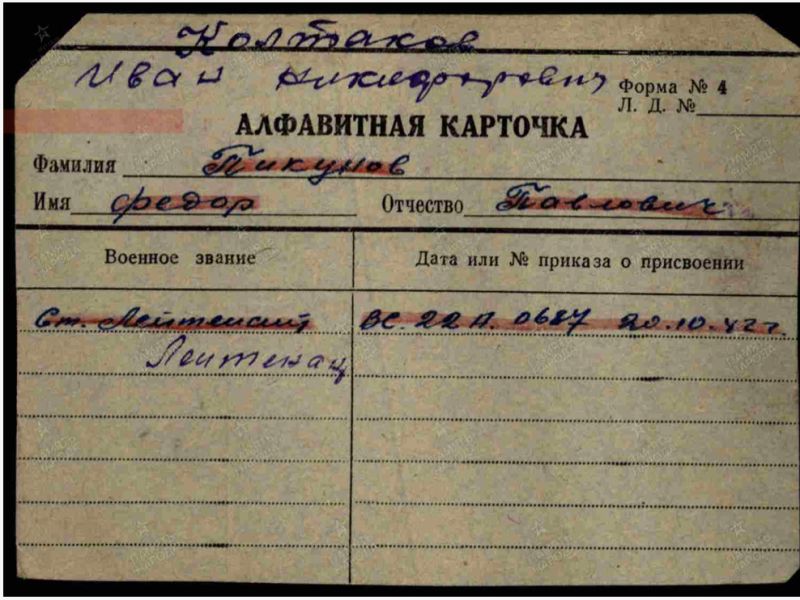 Колтаков
Иван Никифорович
Форма № 4
Л. Д. №
АЛФАВИТНАЯ КАРТОЧКА
Фамилия Пикунов
Имя Федор Отчество Павлович
Военное звание Дата или № приказа о присвоении
Ст. Лейтенант ВС. 22 А. 0687 20.10.42 г.
Лейтенант